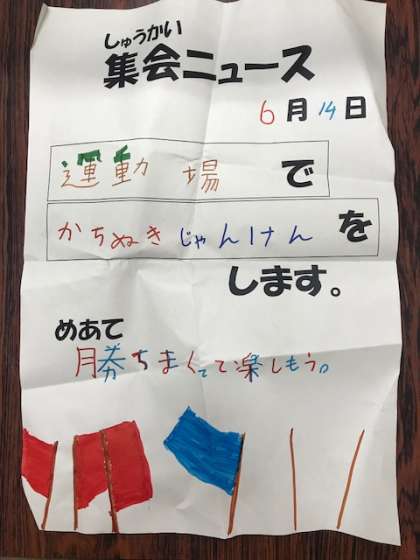 しゅうかい
集会ニュース
6月14日
運動場で
かちぬきじゃんけんを
します。
めあて
勝ちまくって楽しもう。